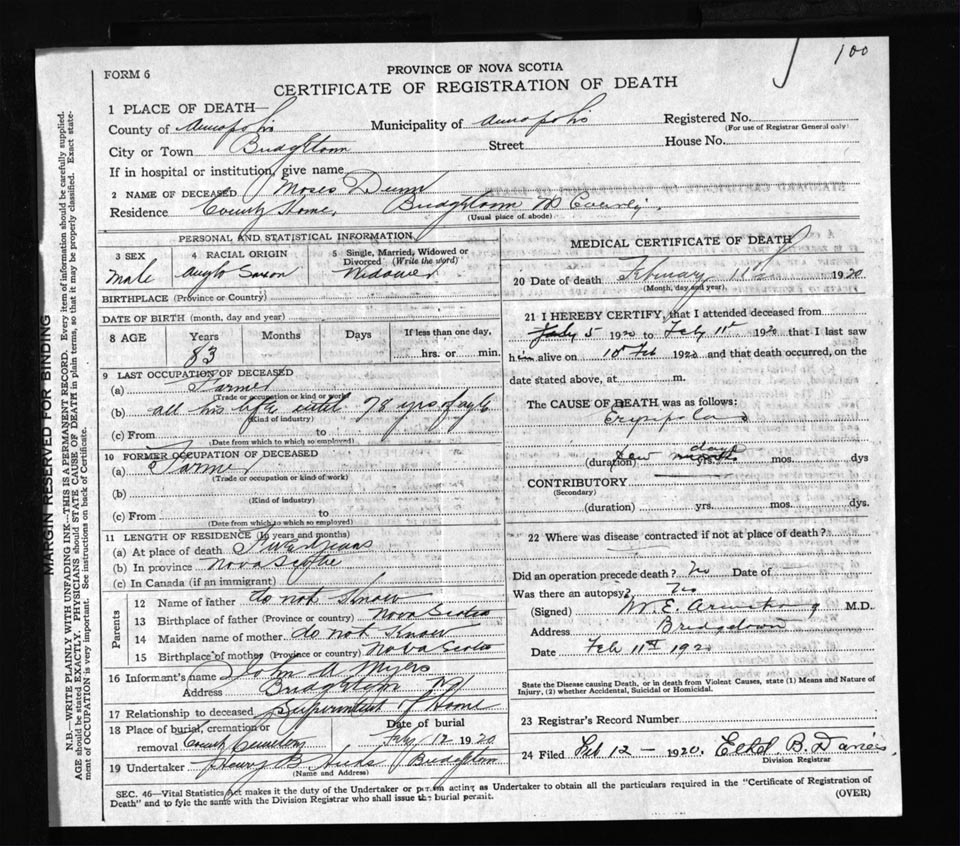 100
FORM 6
PROVINCE OF NOVA SCOTIA
CERTIFICATE OF REGISTRATION OF DEATH
1 PLACE OF DEATH—
County of Annapolis Municipality of Annapolis Registered No.
(For use of Registrar General only)
City or Town Bridgetown Street House No.
If in hospital or institution, give name
2 NAME OF DECEASED Moses Dunn
Residence County Home, Bridgetown
(Usual place of abode)
PERSONAL AND STATISTICAL INFORMATION
3 SEX 4 RACIAL ORIGIN 5 Single, Married, Widowed or Divorced (Write the word)
Male Anglo Saxon Widower
BIRTHPLACE (Province or Country)
DATE OF BIRTH (month, day and year)
8 AGE Years Months Days If less than one day,
83 hrs. or min.
9 LAST OCCUPATION OF DECEASED
(a) Farmer
(Trade or occupation or kind of work)
(b) all his life until 78 yrs of age
(Kind of industry)
(c) From to
(Date from which to which so employed)
10 FORMER OCCUPATION OF DECEASED
(a) Farmer
(Trade or occupation or kind of work)
(b)
(Kind of industry)
(c) From to
(Date from which to which so employed)
11 LENGTH OF RESIDENCE (In years and months)
(a) At place of death
(b) In province Nova Scotia
(c) In Canada (if an immigrant)
Parents
12 Name of father do not Know
13 Birthplace of father (Province or country) Nova Scotia
14 Maiden name of mother do not Know
15 Birthplace of mother (Province or country) Nova Scotia
16 Informant's name John A Myers
Address Bridgetown NS
17 Relationship to deceased Superintendent of Home
18 Place of burial, cremation or Date of burial
removal County Cemetery Feby 12 1920
19 Undertaker Henry B Hicks Bridgetown
(Name and Address)
MEDICAL CERTIFICATE OF DEATH
20 Date of death February 11th 1920
(Month, day and year)
21 I HEREBY CERTIFY, that I attended deceased from
5 1920 to Feb 11th 1920 that I last saw
him alive on 10th Feb 1920 and that death occurred, on the
date stated above, at m.
The CAUSE OF DEATH was as follows:
Erysipelas
(duration) few days yrs. mos. dys
CONTRIBUTORY
(Secondary)
(duration) yrs. mos. dys.
22 Where was disease contracted if not at place of death?
Did an operation precede death? No Date of
Was there an autopsy? No
(Signed) M. E. Armstrong M.D.
Address Bridgetown
Date Feb 11th 1920
State the Disease causing Death, or in death from Violent Causes, state (1) Means and Nature of
Injury, (2) whether Accidental, Suicidal or Homicidal.
23 Registrar's Record Number
24 Filed Feb 12 — 1920. Ethel B. Davies.
Division Registrar
SEC. 46—Vital Statistics Act makes it the duty of the Undertaker or person acting as Undertaker to obtain all the particulars required in the "Certificate of Registration of
Death" and to fyle the same with the Division Registrar who shall issue the burial permit. (OVER)
MARGIN RESERVED FOR BINDING
N.B.—WRITE PLAINLY WITH UNFADING INK—THIS IS A PERMANENT RECORD. Every item of information should be carefully supplied.
AGE should be stated EXACTLY. PHYSICIANS should STATE CAUSE OF DEATH in plain terms, so that it may be properly classified. Exact state-
ment of OCCUPATION is very important. See instructions on back of Certificate.